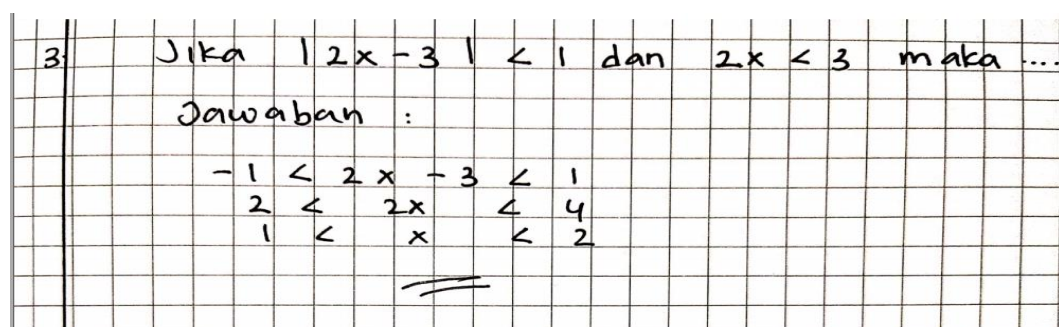 3 Jika |2x - 3| < 1 dan 2x < 3 maka ....
Jawaban :
-1 < 2x - 3 < 1
2 < 2x < 4
1 < x < 2